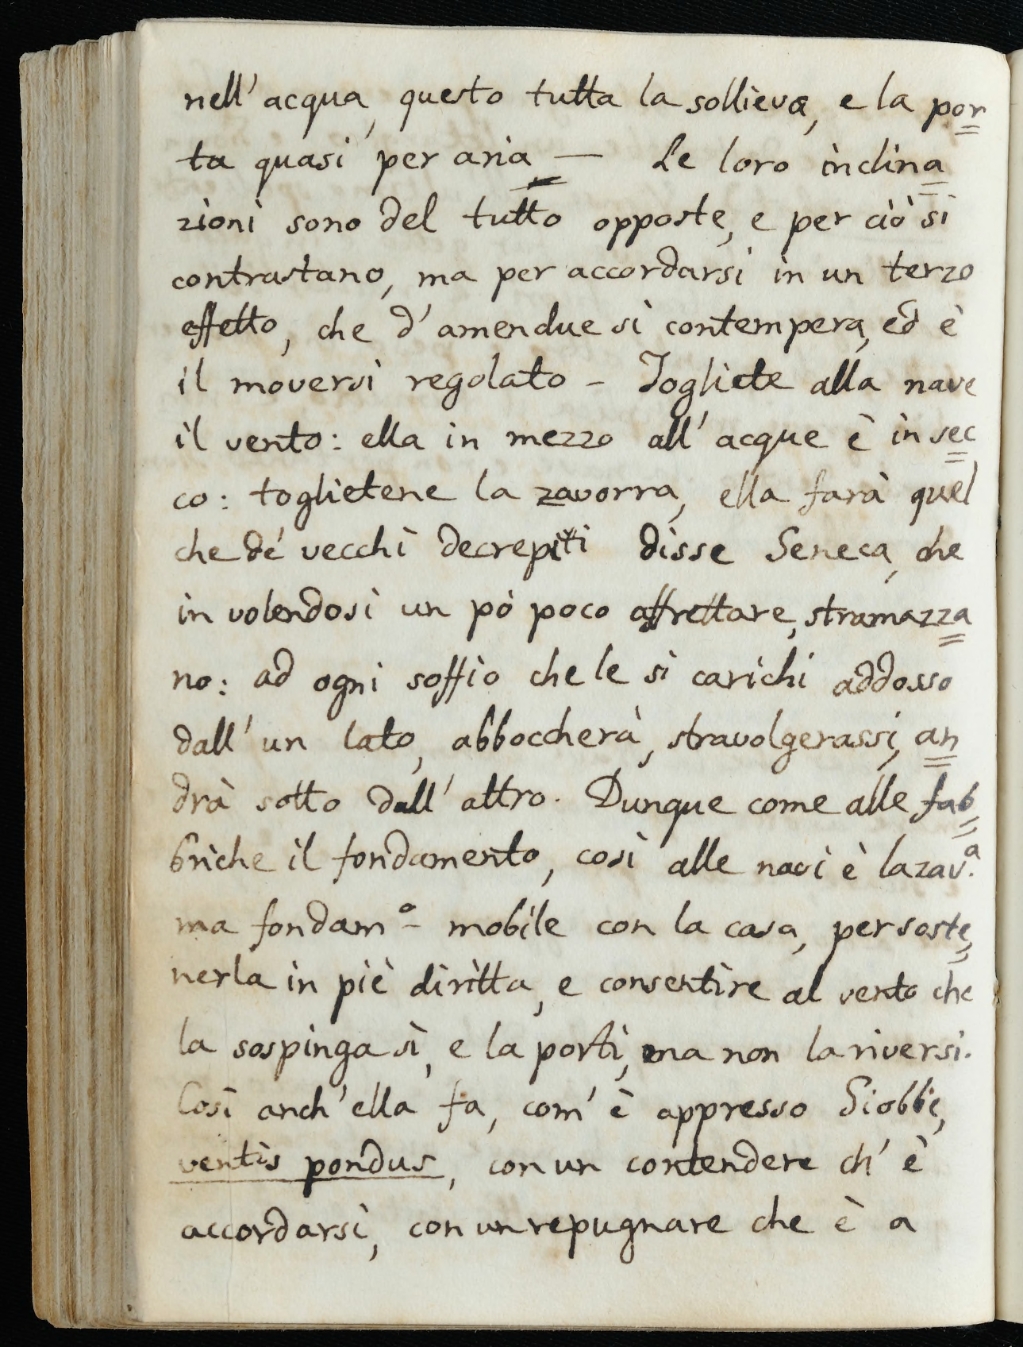 nell' acqua, questo tutta la sollieva, e la por
ta quasi per aria — Le loro inclina
zioni sono del tutto opposte, e per ciò si
contrastano, ma per accordarsi in un terzo
effetto, che d' amendue si contempera, ed è
il moversi regolato – Togliete alla nave
il vento: ella in mezzo all' acque è in sec
co: toglietene la zavorra, ella farà quel
che de' vecchi decrepiti disse Seneca, che
in volendosi un pò poco affrettare, stramazza
no: ad ogni soffio che le si carichi addosso
dall' un lato, abboccherà, stravolgerassi, an
drà sotto dall' altro. Dunque come alle fab
briche il fondamento, così alle navi è la zav.ª
ma fondam.º mobile con la casa, per soste
nerla in piè diritta, e consentire al vento che
la sospinga sì, e la porti, ma non la riversi.
Così anch' ella fa, com' è appresso Giobbe,
ventis pondus, con un contendere ch' è
accordarsi, con un repugnare che è a